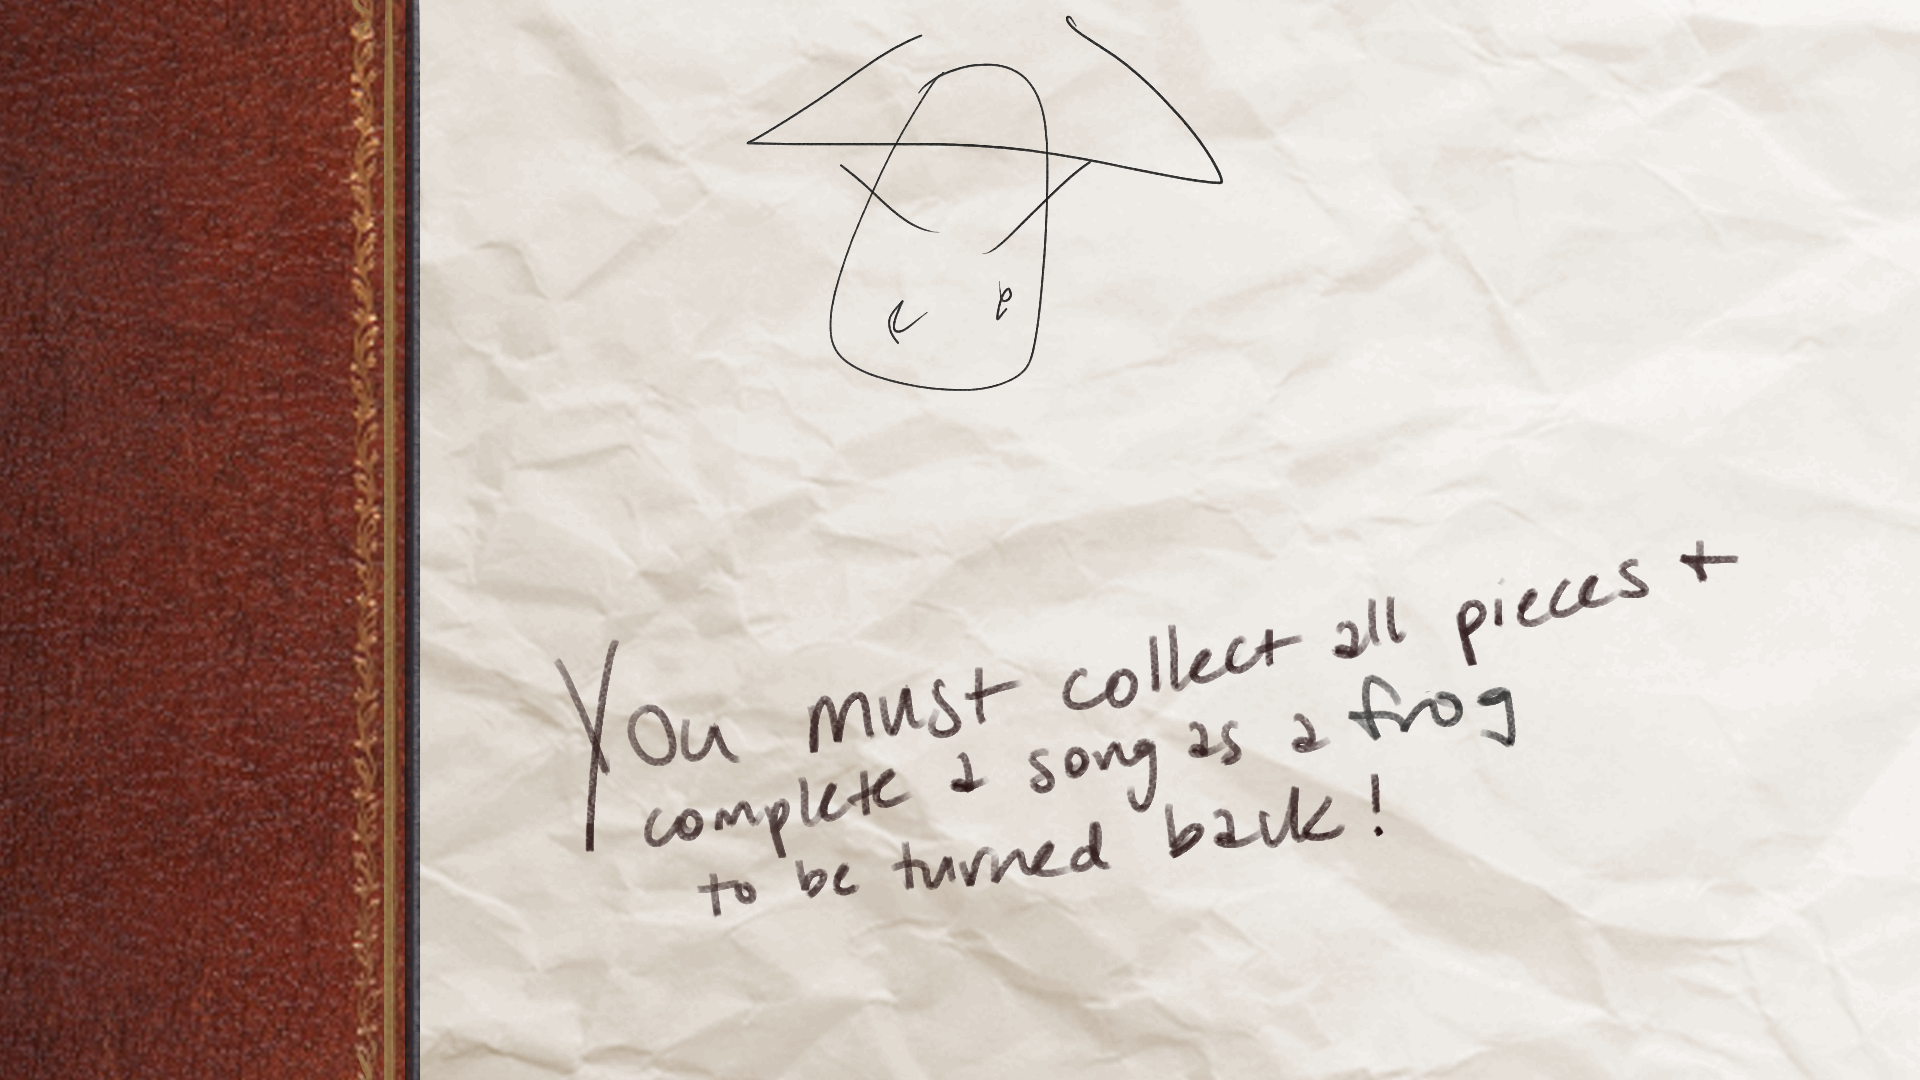 You must collect all pieces +
complete a song as a frog
to be turned back!